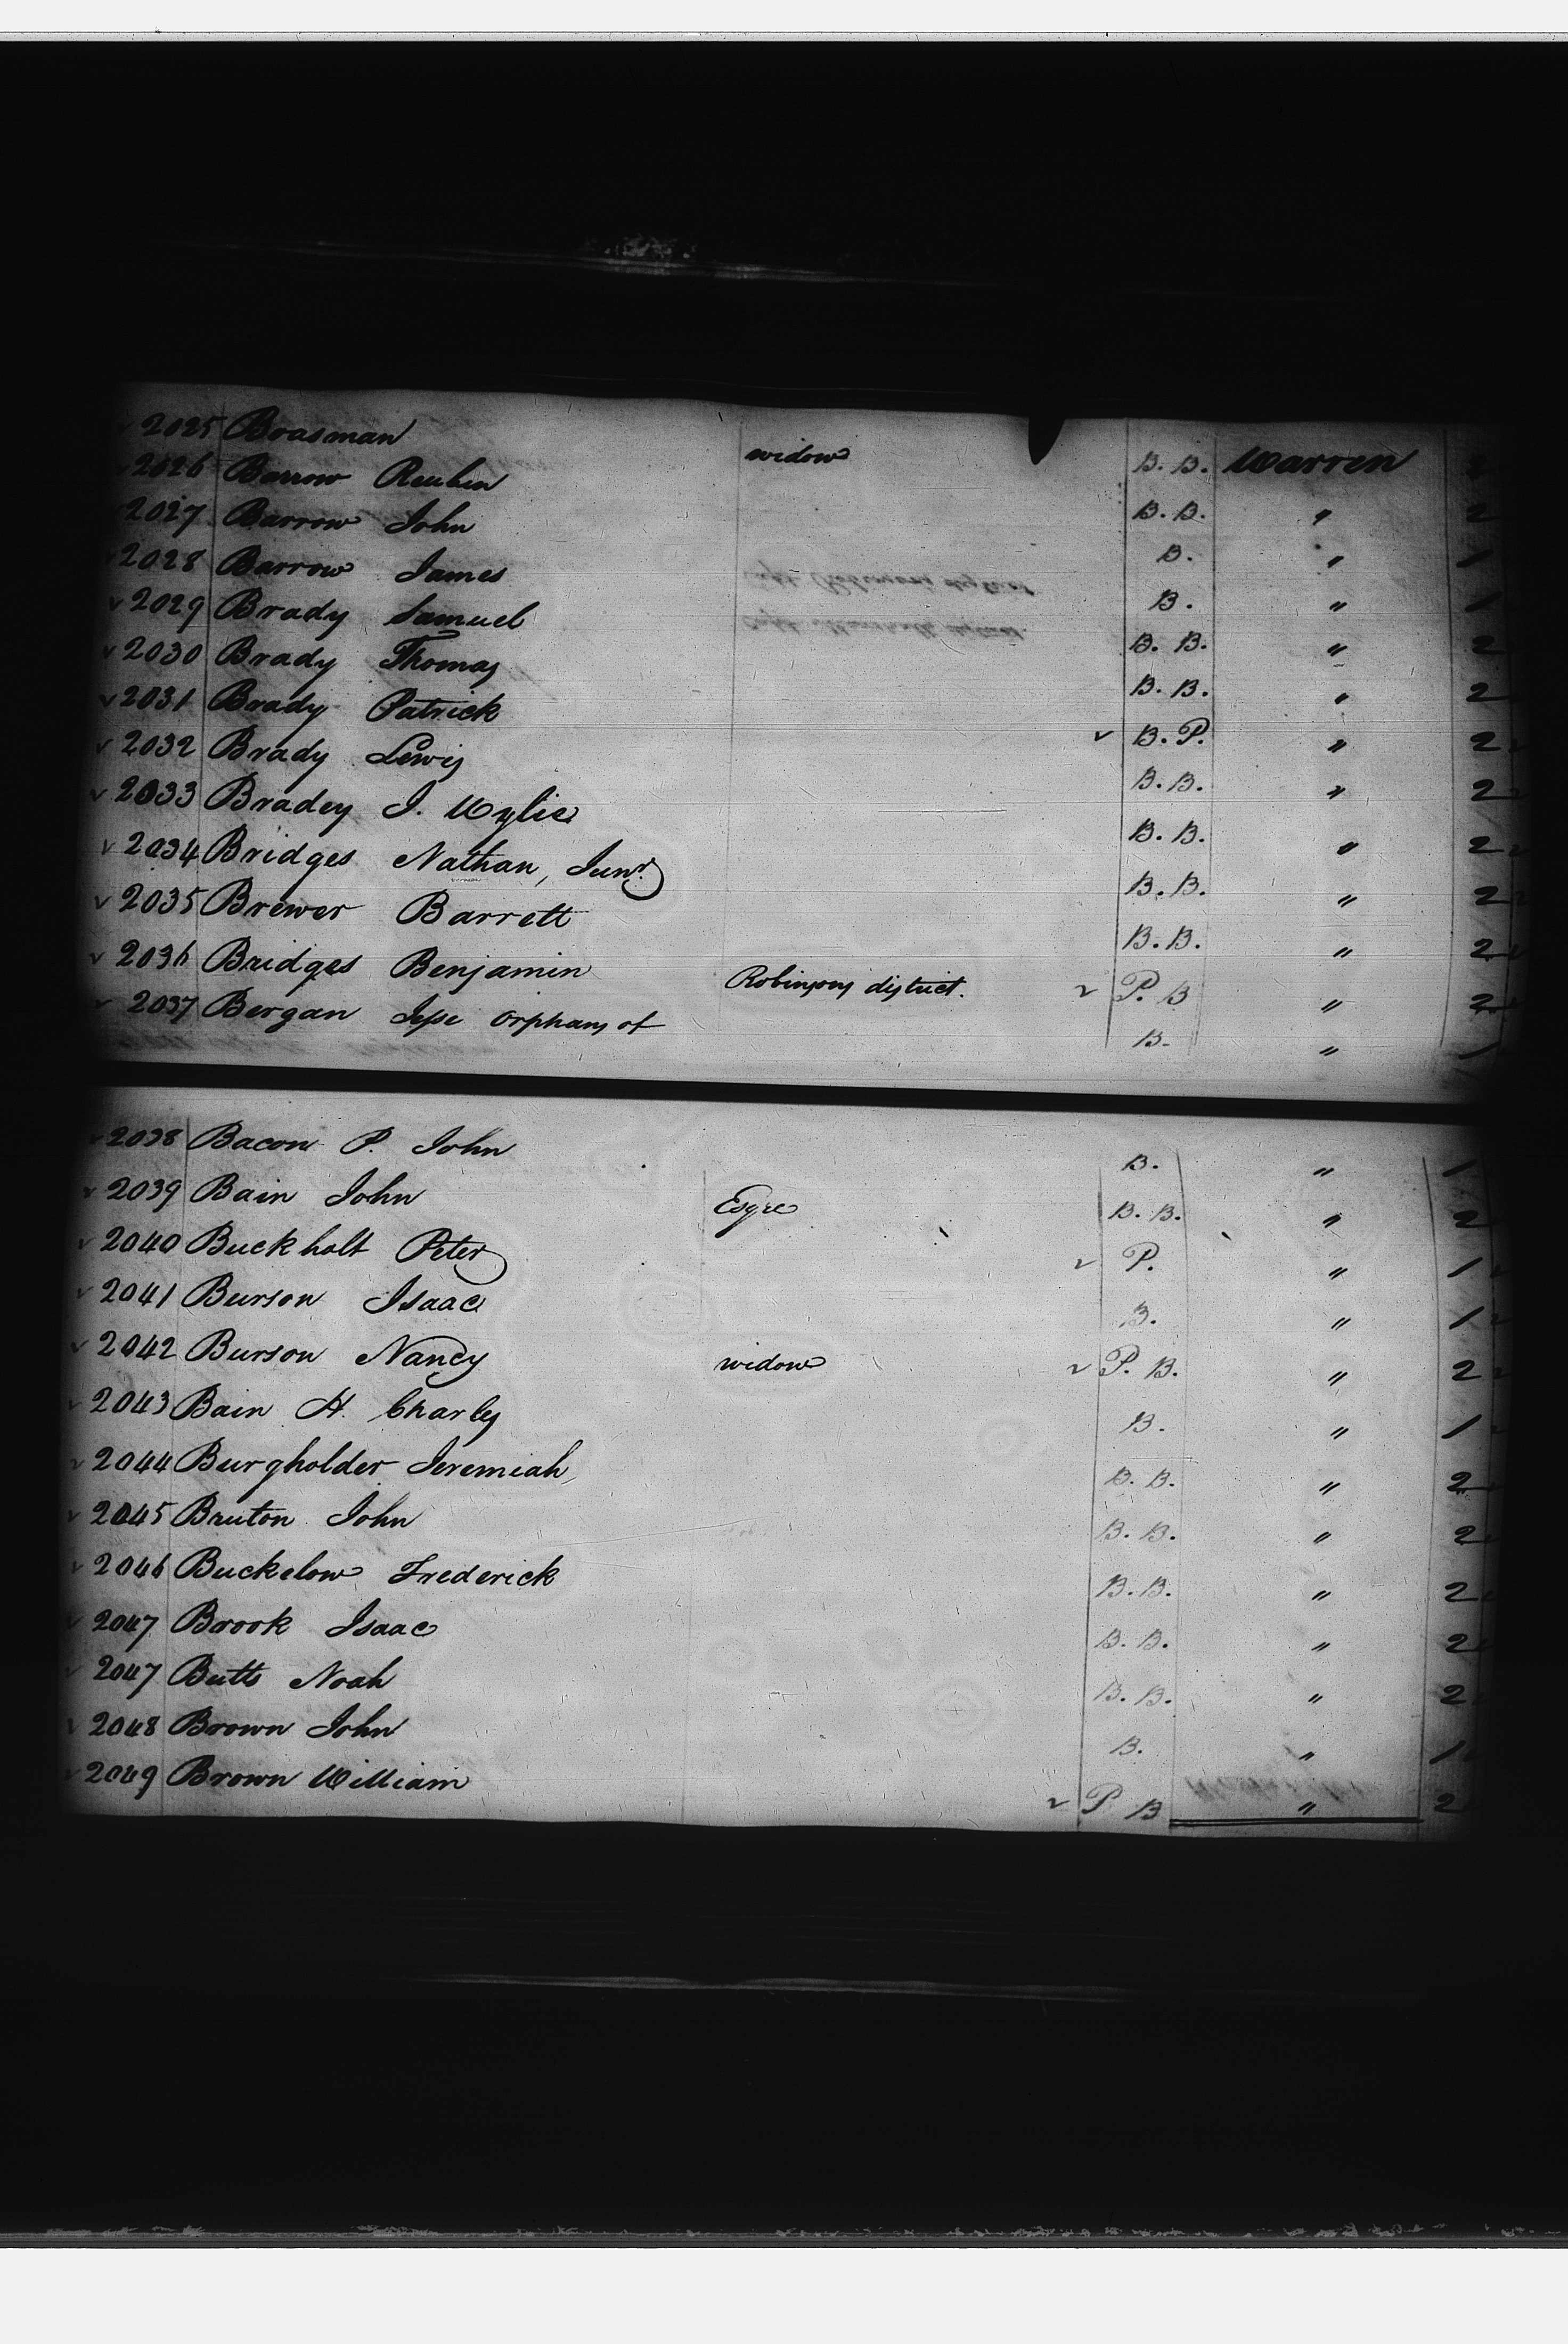 2025 Boasman widow B. B. Warren
2026 Barrow Reuben B. B. " 2
2027 Barrow John B. " 1
2028 Barrow James B. " 1
2029 Brady Samuel B. B. " 2
2030 Brady Thomas B. B. " 2
2031 Brady Patrick v B. P. " 2
2032 Brady Lewis B. B. " 2
2033 Bradey J. Wylie B. B. " 2
2034 Bridges Nathan, Junr. B. B. " 2
2035 Brewer Barrett B. B. " 2
2036 Bridges Benjamin Robinsons district. v P. B " 2
2037 Bergan Jesse orphans of B. " 1
2038 Bacon P. John B. " 1
2039 Bain John Esqre B. B. " 2
2040 Buckholt Peter v P. " 1
2041 Burson Isaac B. " 1
2042 Burson Nancy widow v P. B. " 2
2043 Bain H. Charles B. " 1
2044 Burgholder Jeremiah B. B. " 2
2045 Bruton John B. B. " 2
2046 Buckelow Frederick B. B. " 2
2047 Brook Isaac B. B. " 2
2047 Butts Noah B. B. " 2
2048 Brown John B. " 1
2049 Brown William v P B " 2